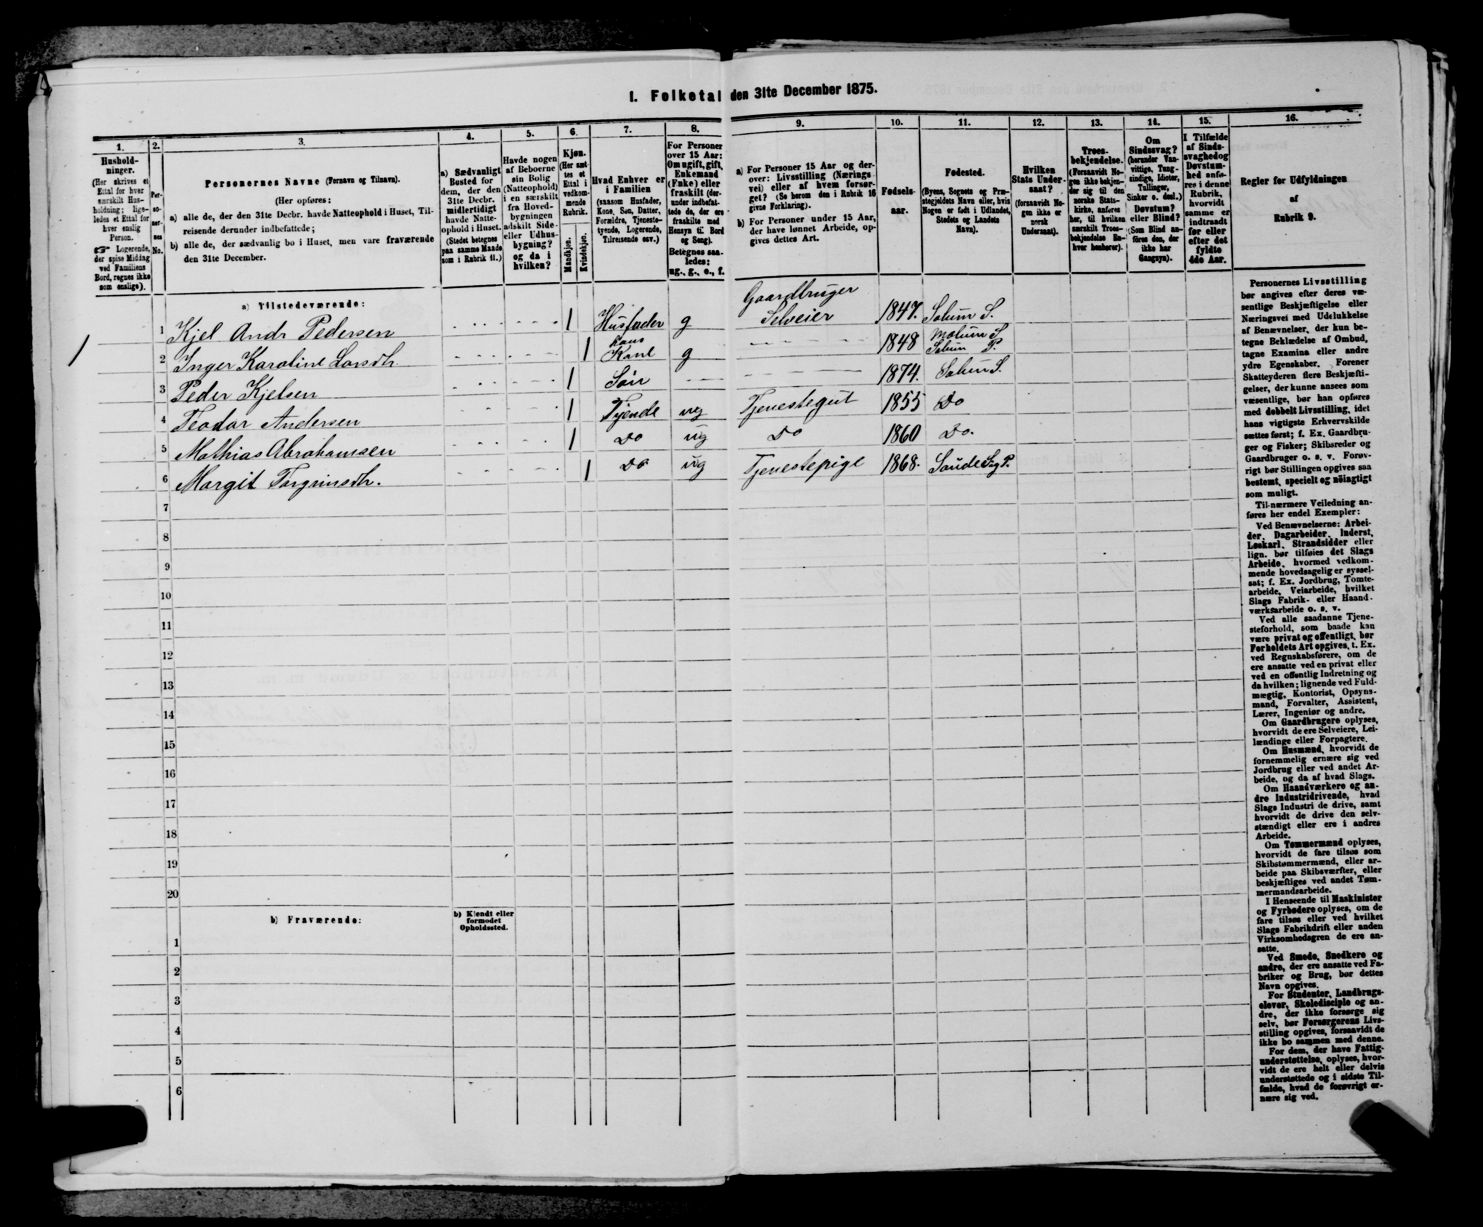 I. Folketal den 31te December 1875.
1. 2. 3. 4. 5. 6. 7. 8. 9. 10. 11. 12. 13. 14. 15. 16.
Hushold-
ninger.
(Her skrives et
Ettal for hver
særskilt Hus-
holdning; lige-
ledes et Ettal for
hver enslig
Person.
☞ Logerende,
der spise Middag
ved Familiens
Bord, regnes ikke
som enslige).
Per-
so-
ner-
nes
No.
Personernes Navne (Fornavn og Tilnavn).
(Her opføres:
a) alle de, der den 31te Decbr. havde Natteophold i Huset, Til-
reisende derunder indbefattede;
b) alle de, der sædvanlig bo i Huset, men vare fraværende
den 31te December.
a) Sædvanligt
Bosted for
dem, der den
31te Decbr.
midlertidigt
havde Natte-
ophold i Huset.
(Stedet betegnes
paa samme Maade
som i Rubrik 11.)
Havde nogen
af Beboerne
sin Bolig
(Natteophold)
i en særskilt
fra Hoved-
bygningen
adskilt Side-
eller Udhus-
bygning?
og da i
hvilken?
Kjøn.
(Her sæt
tes et
Ettal i
vedkom-
mende
Rubrik.
Mandkjøn.
Kvindekjøn.
Hvad Enhver er
i Familien
(saasom Husfader,
Kone, Søn, Datter,
Forældre, Tjeneste-
tyende, Logerende,
Tilreisende osv.)
For Personer
over 15 Aar:
Om ugift, gift,
Enkemand
(Enke) eller
fraskilt (der-
under indbefat-
tede de, der ere
fraskilte med
Hensyn til Bord
og Seng).
Betegnes saa-
ledes:
ug., g., e., f.
a) For Personer 15 Aar og der-
over: Livsstilling (Nærings-
vei) eller af hvem forsør-
get? (Se herom den i Rubrik 16
givne Forklaring).
b) For Personer under 15 Aar,
der have lønnet Arbeide, op-
gives dettes Art.
Fødsels-
aar.
Fødested.
(Byens, Sognets og Præ-
stegjeldets Navn eller, hvis
Nogen er født i Udlandet,
Stedets og Landets
Navn).
Hvilken
Stats Under-
saat?
(forsaavidt No-
gen ikke er
norsk
Undersaat).
Troes-
bekjendelse.
(Forsaavidt No-
gen ikke bekjen-
der sig til den
norske Stats-
kirke, anføres
her, til hvilken
særskilt Troes-
bekjendelse Ro-
hver henhører).
Om
Sindssvag?
(herunder Van-
vittige, Tung-
sindige, Idioter,
Tullinger,
Sinker o. desl.)
Døvstum?
eller Blind?
(Som Blind an-
føres den, der
ikke har
Gangsyn).
I Tilfælde
af Sinds-
svaghed og
Døvstum-
hed anfø-
res i denne
Rubrik,
hvorvidt
samme er
indtraadt
før eller
efter det
fyldte
4de Aar.
Regler for Udfyldningen
af
Rubrik 9.
a) Tilstedeværende:
1 1 Kjel Andr Pedersen 1 Husfader g Gaardbruger
Selveier 1847. Solum S.
2 Inger Karoline Larsdtr. 1 hans
Kone g 1848 Melum S
Solum P.
3 Peder Kjelsen 1 Søn 1874. Solum S.
4 Teodor Andersen 1 Tyende ug Tjenestegut 1855 Do
5 Mathias Abrahamsen 1 Do ug Do 1860 Do.
6 Margit Torgrimsdtr. 1 Do ug Tjenestepige 1868. Saude
7
8
9
10
11
12
13
14
15
16
17
18
19
20
b) Fraværende: b) Kjendt eller
formodet
Opholdssted.
1
2
3
4
5
6
Personernes Livsstilling
bør angives efter deres væ-
sentlige Beskjæftigelse eller
Næringsvei med Udelukkelse
af Benævnelser, der kun be-
tegne Beklædelse af Ombud,
tagne Examina eller andre
ydre Egenskaber. Forener
Skatteyderen flere Beskjæfti-
gelser, der kunne ansees som
væsentlige, bør han opføres
med dobbelt Livsstilling, idet
hans vigtigste Erhvervskilde
sættes først; f. Ex. Gaardbru-
ger og Fisker; Skibsreder og
Gaardbruger o. s. v. Forøv-
rigt bør Stillingen opgives saa
bestemt, specielt og nöiagtigt
som muligt.
Til nærmere Veiledning an-
føres her endel Exempler:
Ved Benævnelserne: Arbei-
der, Dagarbeider, Inderst,
Løskarl, Strandsidder eller
lign. bør tilføies det Slags
Arbeide, hvormed vedkom-
mende hovedsagelig er syssel-
sat; f. Ex. Jordbrug, Tomte-
arbeide, Veiarbeide, hvilket
Slags Fabrik- eller Haand-
værksarbeide o. s. v.
Ved alle saadanne Tjene-
steforhold, som baade kan
være privat og offentligt, bør
Forholdets Art opgives, t. Ex.
ved Regnskabsførere, om de
ere ansatte ved en privat eller
ved en offentlig Indretning og
da hvilken; lignende ved Fuld-
mægtig, Kontorist, Opsyns-
mand, Forvalter, Assistent,
Lærer, Ingeniør og andre.
Om Gaardbrugere oplyses,
hvorvidt de ere Selveiere, Lei-
lændinge eller Forpagtere.
Om Husmænd, hvorvidt de
fornemmelig ernære sig ved
Jordbrug eller ved andet Ar-
beide, og da af hvad Slags.
Om Haandværkere og an-
dre Industridrivende, hvad
Slags Industri de drive, samt
hvorvidt de drive den selv-
stændigt eller ere i andres
Arbeide.
Om Tømmermænd oplyses,
hvorvidt de fare tilsøs som
Skibstømmermænd, eller ar-
beide paa Skibsværfter, eller
beskjæftiges ved andet Tøm-
mermandsarbeide.
I Henseende til Maskinister
og Fyrbødere oplyses, om de
fare tilsøs eller ved hvilket
Slags Fabrikdrift eller anden
Virksomhedsgren de ere an-
satte.
Ved Smede, Snedkere og
andre, der ere ansatte ved Fa-
briker og Brug, bør dettes
Navn opgives.
For Studenter, Landbrugs-
elever, Skoledisciple og an-
dre, der ikke forsørge sig
selv, bør Forsørgerens Livs-
stilling opgives, forsaavidt de
ikke bo sammen med denne.
For dem, der have Fattig-
understøttelse, oplyses, hvor-
vidt de ere helt eller delvis
understøttede og i sidste Til-
fælde, hvad de forøvrigt er-
nære sig ved.